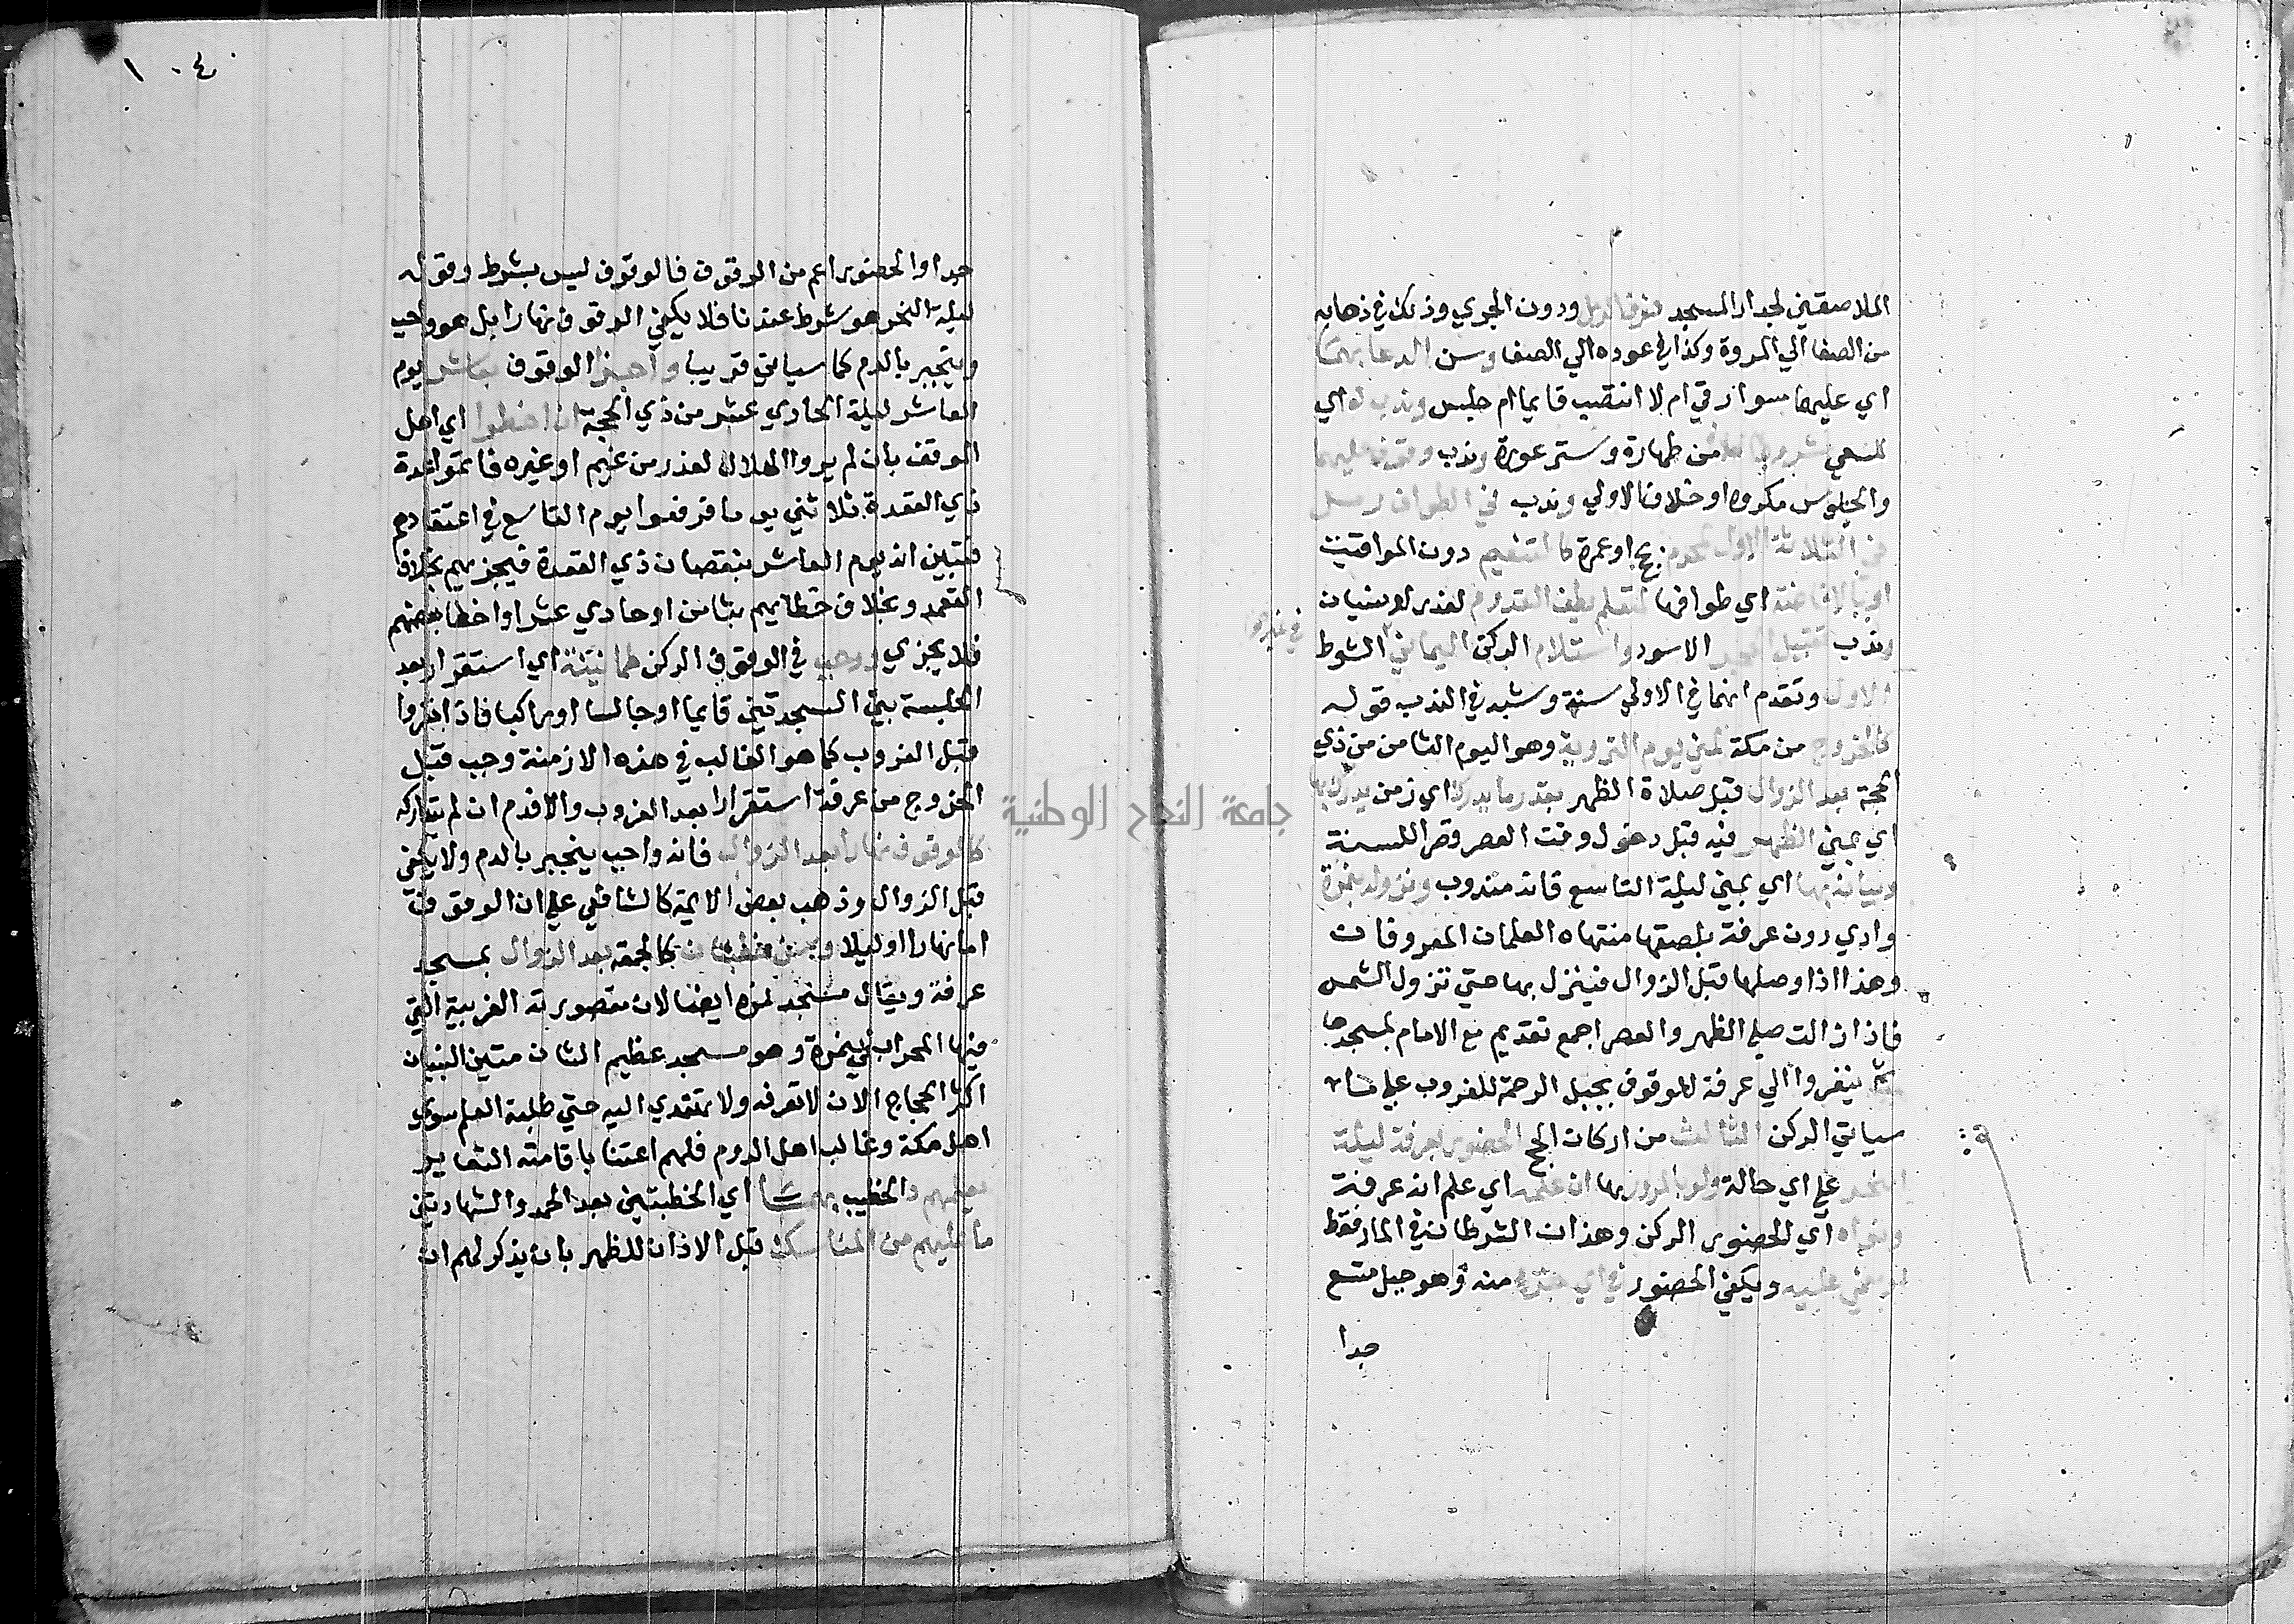 الملاصقين لجدار المسجد فوق الرمل ودون الجري وذلك في ذهابه
من الصفا الي المروة وكذا في عوده الي الصفا وسن الدعا بهما
اي عليهما سوا رقي ام لا انتصب قايما ام جلس وندب له اي
للسعي شروط الصلاة من طهارة وستر عورة وندب وقوف عليهما
والجلوس مكروه او خلاف الاولي وندب في الطواف رمل
في الثلاثة الاول لمحرم بحج او عمرة كالتنعيم دون المواقيت
او بالافاضة اي طوافها لمن لم يطف القدوم لعذر او نسيان
وندب تقبيل الحجر الاسود واستلام الركن اليماني الشوط
في غير
الاول وتقدم انهما في الاولي سنة وشبه في الندب قوله
كالخروج من مكة لمني يوم التروية وهو اليوم الثامن من ذي
الحجة بعد الزوال قبل صلاة الظهر بقدر ما يدرك اي زمن يدرك بها
اي بمني الظهر فيه قبل دخول وقت العصر وقصرا للسنة
وبياته بها اي بمني ليلة التاسع فانه مندوب ونزوله بنمرة
وادي دون عرفة بلصقها منتهاه العلمان المعروفان
وهذا اذا وصلها قبل الزوال فينزل بها حتي تزول الشمس
فاذا زالت صلي الظهر والعصر اجمع تقديم مع الامام بمسجدها
ثم ينفروا الي عرفة للوقوف بجبل الرحمة للغروب علي ما
سياتي الركن الثالث من اركان الحج الحضور بعرفة ليلة
النحر علي اي حالة ولو بالمرور بها ان علمه اي علم انه عرفة
ونواه اي الحضور الركن وهذان الشرطان في المار فقط
او مغمي عليه ويكفي الحضور في اي جزء منه وهو جبل متسع
جدا
١٠٤
جدا والحضور اعم من الوقوف فالوقوف ليس بشرط وقوله
ليلة النحر هو شرط عندنا فلا يكفي الوقوف نهارا بل هو واجب
وينجبر بالدم كما سياتي قريبا واجزا الوقوف بعاشر يوم
العاشر ليلة الحادي عشر من ذي الحجة ان اخطوا اي اهل
الموقف بان لم يروا الهلال لعذر من غيم او غيره فاتموا عدة
ذي القعدة ثلاثين يوما فوقفوا يوم التاسع في اعتقادهم
فتبين انه يوم العاشر بنقصان ذي القعدة فيجزيهم بخلاف
التعمد وبخلاف خطايهم بثامن او حادي عشر او اخطا بعضهم
فلا يجزي ووجب في الوقوف الركن طمانينة اي استقرار بعد
الجلسة بين السجدتين قايما او جالسا او راكبا فاذا نفروا
قبل الغروب كما هو الغالب في هذه الازمنة وجب قبل
الخروج من عرفة استقرارا بعد الغروب والا فدم ان لم يتداركه
كالوقوف نهارا بعد الزوال فانه واجب ينجبر بالدم ولا يكفي
قبل الزوال وذهب بعض الايمة كالشافعي علي ان الوقوف
اما نهارا او ليلا وسن خطبتان كالجمعه بعد الزوال بمسجد
عرفة ويقال مسجد نمره ايضا لان مقصورته الغربية التي
فيها المحراب في نمرة وهو مسجد عظيم الشان متين البنيان
اكثر الحجاج الان لا تعرفه ولا تهتدي اليه حتي طلبة العلم سوي
اهل مكة وغالب اهل الروم فلهم اعتنا باقامة الشعاير
يعلمهم الخطيب بهما اي الخطبتين بعد الحمد والشهادتين
ما عليهم من المناسك قبل الاذان للظهر بان يذكر لهم ان
جامعة النجاح الوطنية